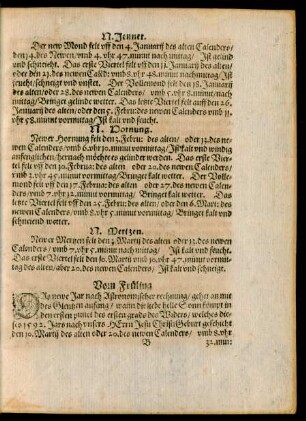 N. Jenner.
Der new Mond felt vff den 4. Januarij des alten Calenders/
den 14. des Newen/vmb 4. vhr 47. minut nach mittag/ Ist gelind
vnd schneicht. Das erste Viertel felt vff den 11. Januarij des alten/
oder den 21. des newen Calẽd: vmb 8. vhr 48. minut nachmittag/Ist
feucht/schneigt vnd wüsset. Der Vollemond felt den 18. Januarij
des alten/oder 28. des newen Calenders/ vmb 5. vhr 8. minut/nach
mittag/Bringet gelinde wetter. Das letzte Viertel felt auff den 26.
Januarij des alten/oder den 5. Februarij des newen Calenders vmb 11.
vhr 58. minut vormittag/ Ist kalt vnd feucht.
N. Hornung.
Newer Hornung felt den 3. Febru: des alten/ oder 13. des ne-
wen Calenders/ vmb 6. vhr 30. minut vormittag/ Ist kalt vnd windig
anfenglichen/hernach möcht es gelinder werden. Das erste Vier-
tel felt vff den 10. Februa: des alten oder 20. des newen Calenders/
vmb 2. vhr 45. minut vormittag/Bringet kalt wetter. Der Volle-
mond felt vff den 17. Februa: des alten oder 27. des newen Calen-
ders/vmb 7. vhr 12. minut vormittag/ Bringet kalt wetter. Das
letzte Viertel felt den 25. Febru: des alten/ oder den 6. Marti: des
newen Calenders/ vmb 8. vhr 5. minut vormittag/ Bringt kalt vnd
schneiend wetter.
N. Mertzen.
Newer Mertzen felt den 4. Martij des alten oder 14. des newen
Calenders/ vmb 7. vhr 5. minut nach mittag/ Ist kalt vnd feucht.
Das erste Viertel felt den 10. Martij vmb 10. vhr 47. minut vormit-
tag des alten/aber 20. des newen Calenders/ Ist kalt vnd schneigt.
Vom Früling
Das newe Jar nach Astronomischer rechnung/ gehet an mit
des Glentzen anfang/ wann die liebe Sonn kömpt in
den ersten punct des ersten grads des Widers/ welches die-
ses 1592. Jars nach vnsers HErrn Jesu Christi Geburt geschicht
den 10. Martij des alten oder 20. des newen Calenders/ vmb 8. vhr
B 32. minu: